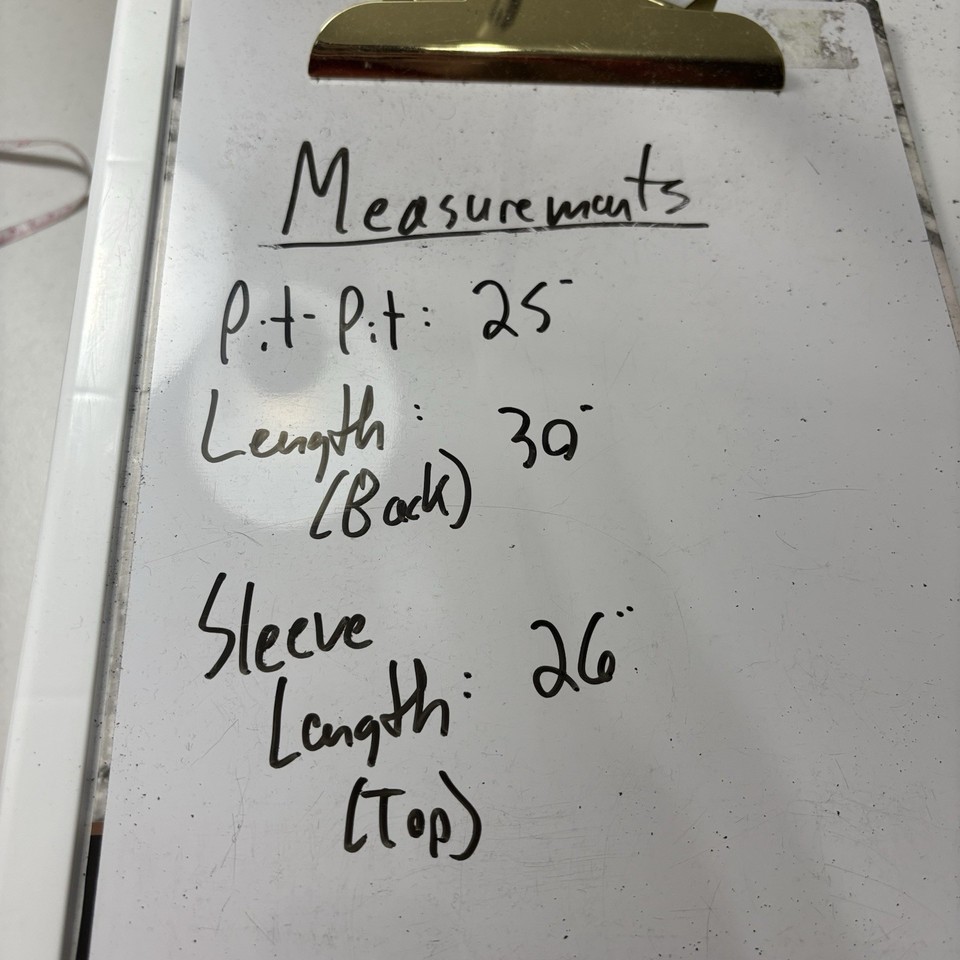 Measurements
Pit-Pit: 25"
Length: 30"
(Back)
Sleeve
Length: 26"
(Top)